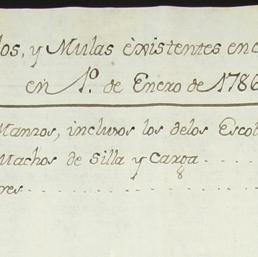 los, y Mulas èxistentes en
en 1º. de Enero de 1786
Manzos, inclusos los delos Escol
Machos de Silla y Carga . . . .
res . . . . . . . . . . . . . . . .